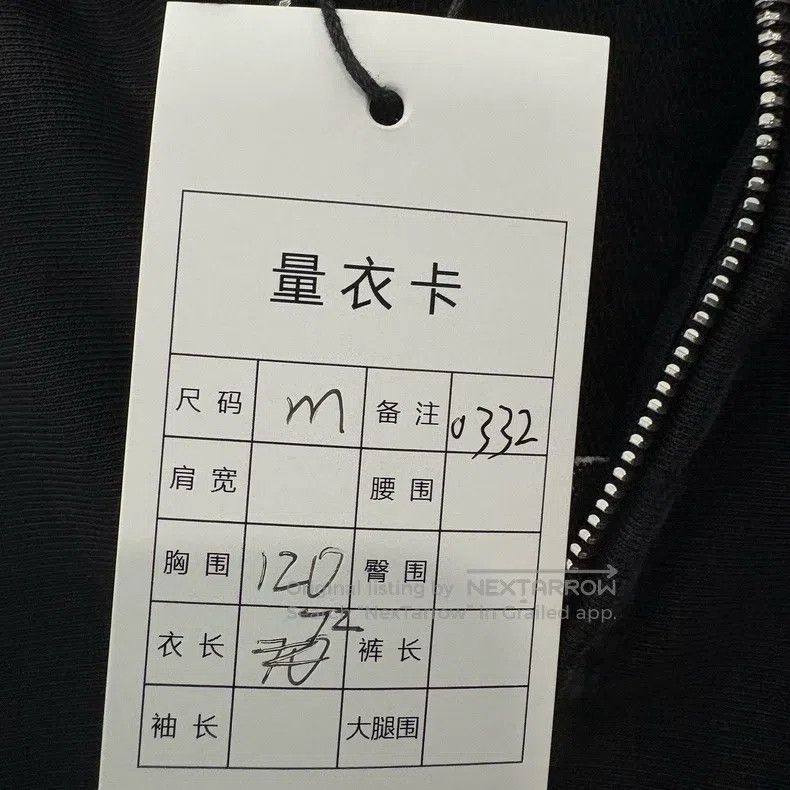 量衣卡
尺码 m 备注 0332
肩宽 腰围
胸围 120 臀围
Original listing by NEXTARROW
Search "NexTarrow" in Grailed app.
72
衣长 70 裤长
袖长 大腿围